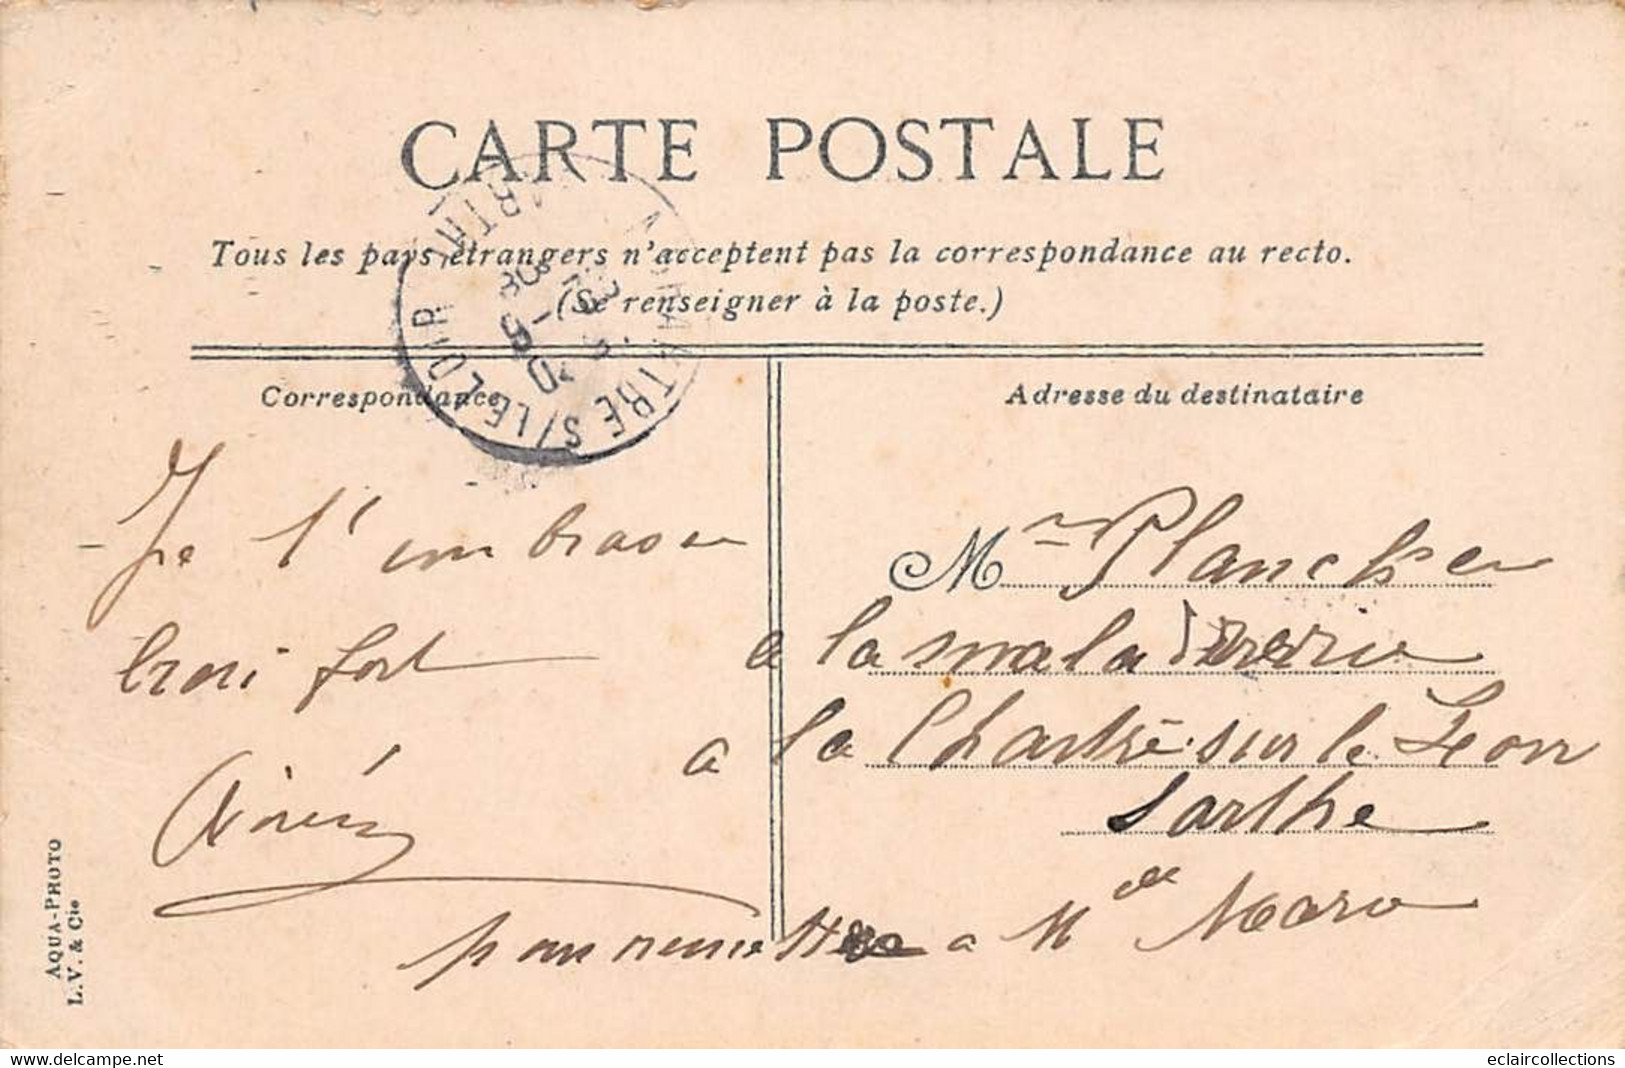 CARTE POSTALE
Tous les pays étrangers n'acceptent pas la correspondance au recto.
(Se renseigner à la poste.)
Correspondance
Adresse du destinataire
LA CHARTRE S/LE LOIR
Je t'embrasse
bien fort
Aimée
Mr Plancher
a la maladrerie
a la Chartre sur le Loir
Sarthe
pour remettre a Mde Marie
AQUA-PHOTO
L. V. & Cie
www.delcampe.net
eclaircollections